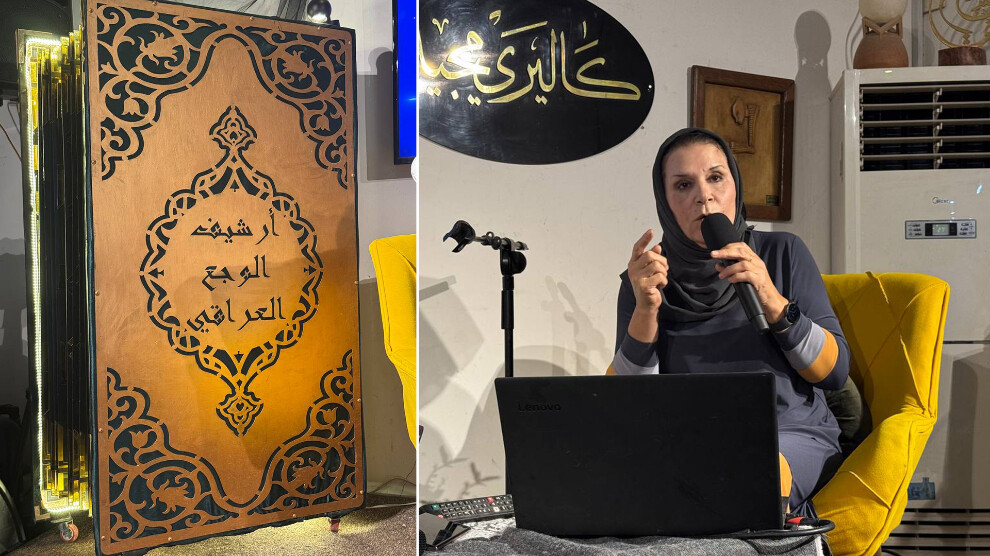 أرشيف
الوجع
العراقي
كاليري مجيد
Lenovo
Midea